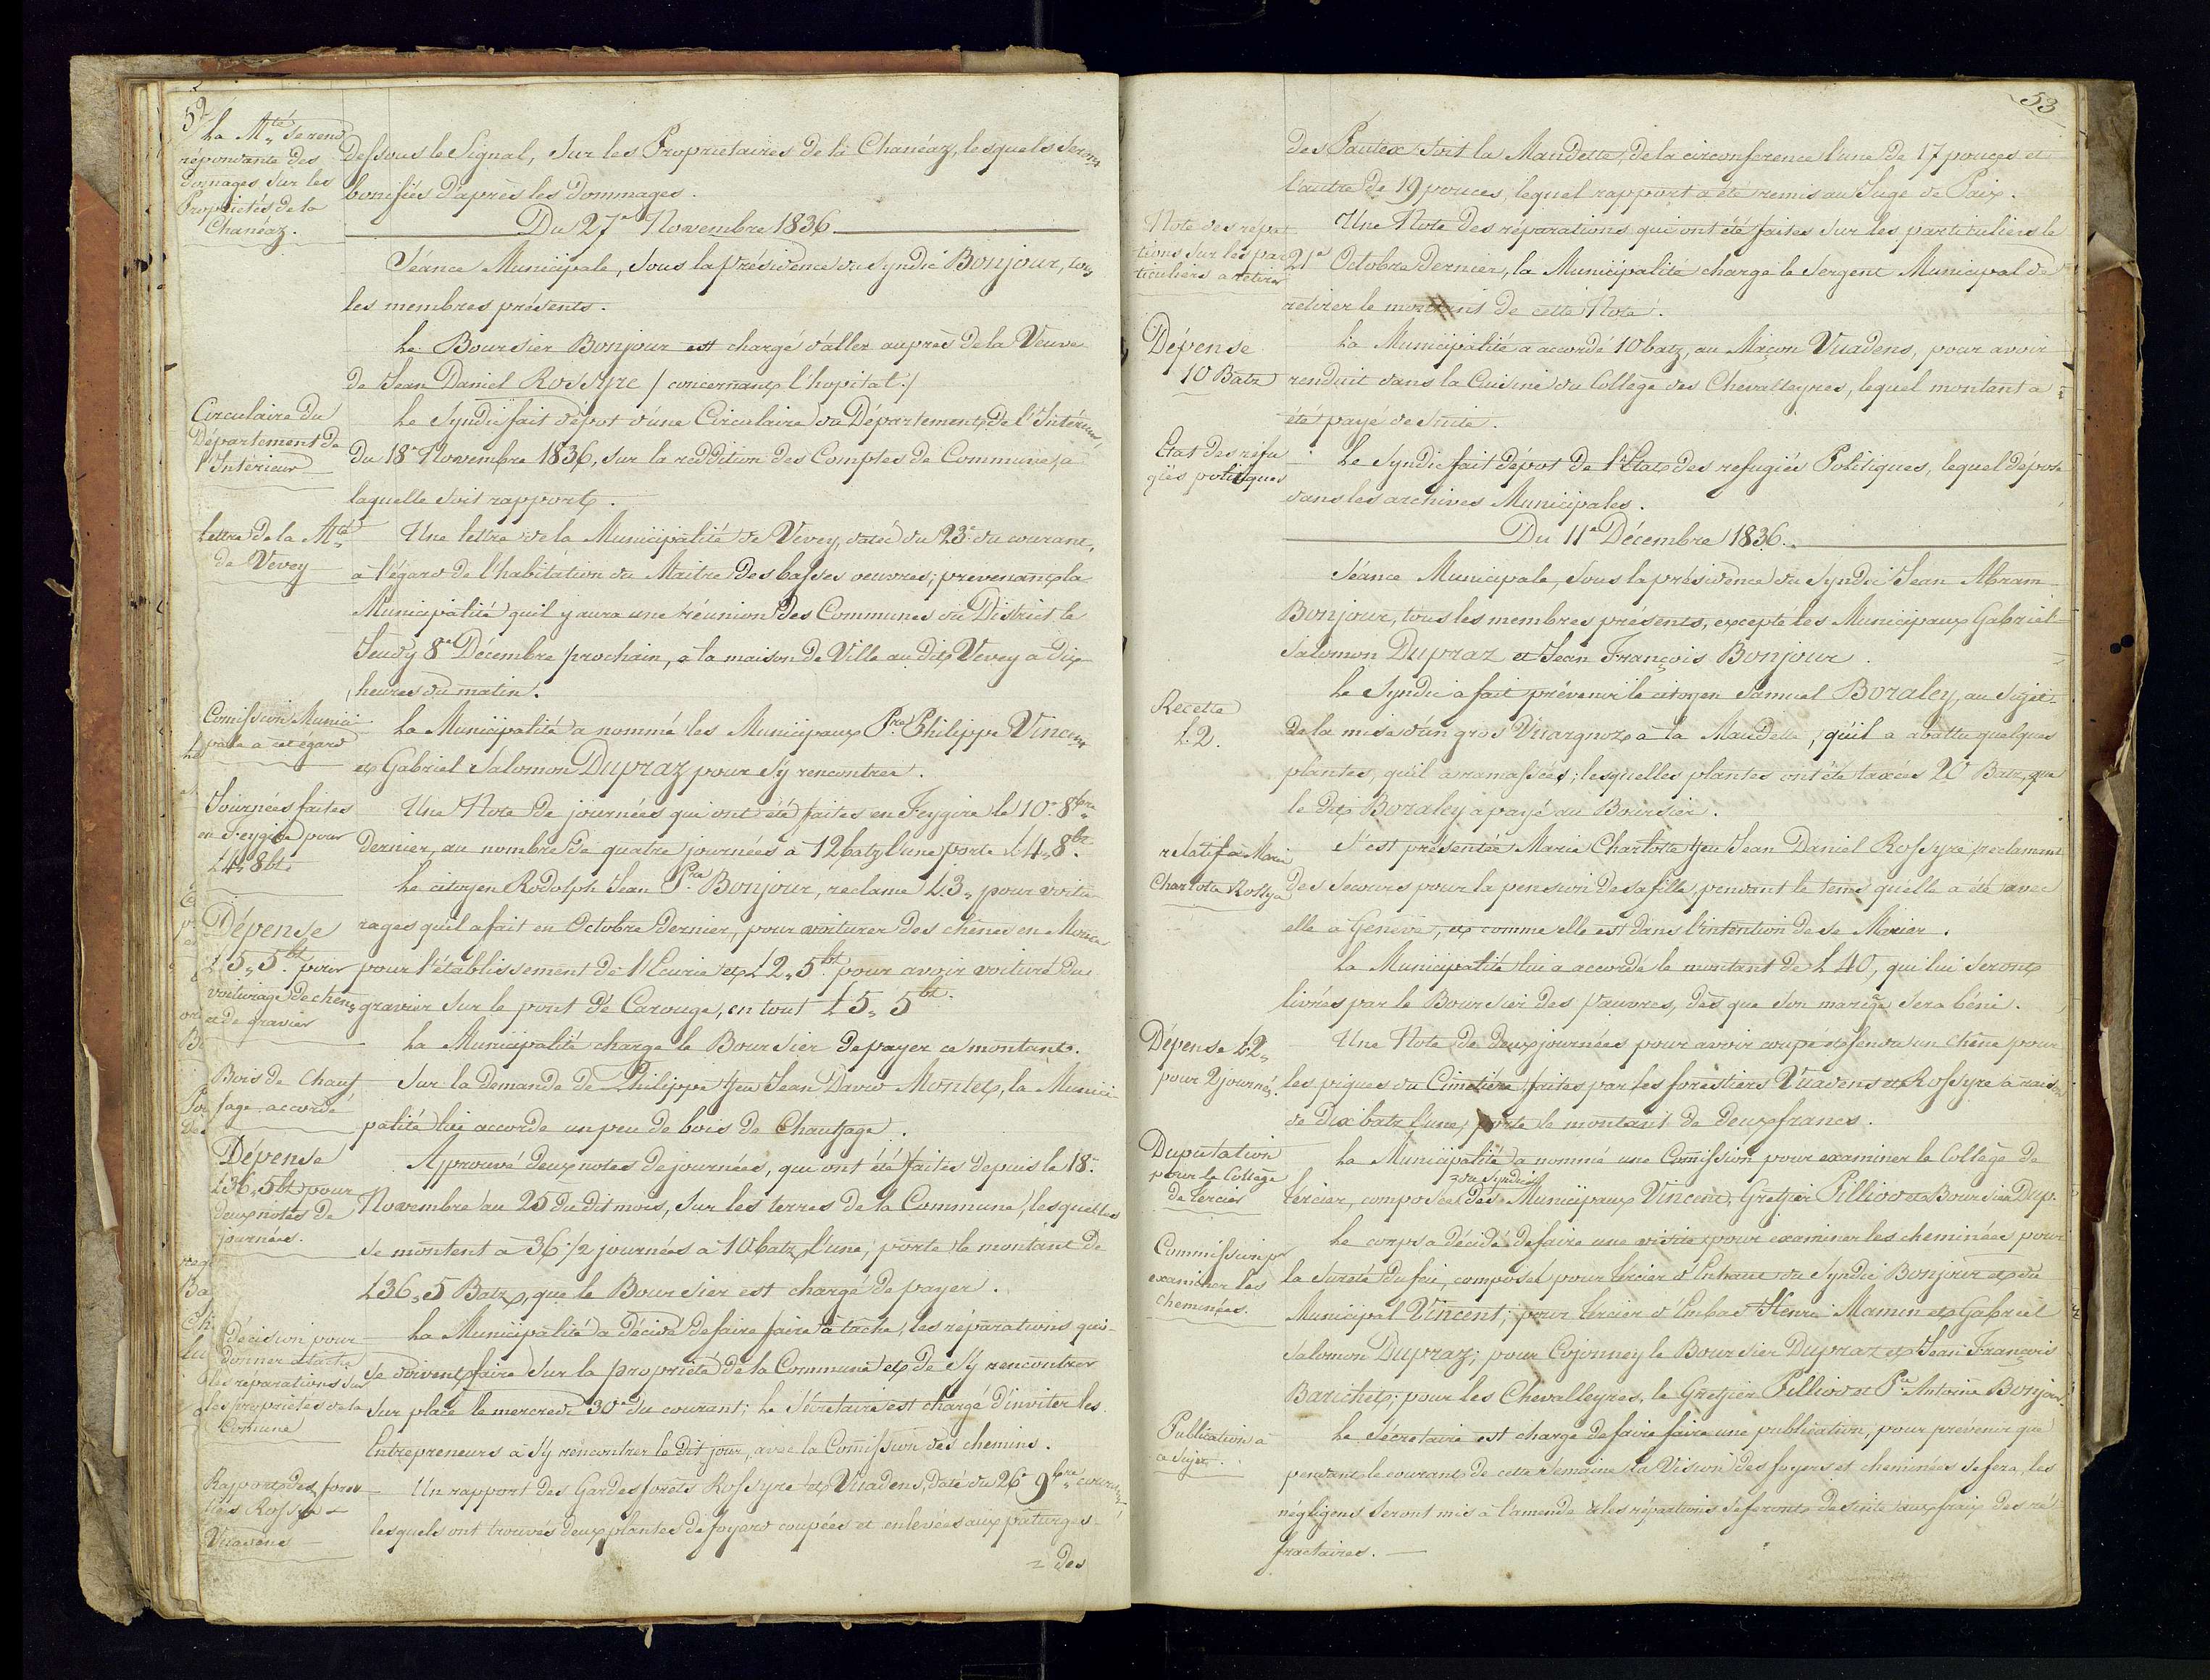 52
La M.té se rend
répondante des
domages sur les
Propriétés de la
Chanéaz.
dessous le Signal, sur les Propriétaires de la Chanéaz, lesquels seront
bonifiés d'après les dommages.
Du 27e Novembre 1836
Séance Municipale, sous la présidence du Syndic Bonjour, tous
les membres présents.
Le Boursier Bonjour est chargé d'aller auprès de la Veuve
de Jean Daniel Rossyre / concernant l'hopital./
Circulaire du
Département de
l'Intérieur
Le Syndic fait dépot d'une Circulaire du Département de l'Intérieur,
du 18e Novembre 1836, sur la reddition des Comptes de Commune, a
laquelle soit rapport.
Lettre de la M.té
de Vevey
Une lettre de la Municipalité de Vevey, datée du 23e du courant,
à l'égard de l'habitation du Maitre des basses oeuvres; prevenant la
Municipalité qu'il y aura une réunion des Communes du District le
Jeudy 8e Décembre prochain, a la maison de Ville au dit Vevey a dix
heures du matin.
Comission Munici
pale a cet égard
La Municipalité a nommé les Municipaux Pre Philippe Vincent
et Gabriel Salomon Dupraz pour s'y rencontrer.
Journées faites
en Feygire pour
£4,, 8bt.
Une Note de journées qui ont été faites en Feygire le 10e 8bre
dernier, au nombre de quatre journées à 12 batz l'une porte £4,, 8bt.
Le citoyen Rodolph Jean Pre Bonjour, reclame £3,, pour voitu
Dépense
£5,, 5bt. pour
voiturage de chêns
et de gravier
rages qu'il a fait en Octobre dernier, pour voiturer des chênes en
pour l'établissement de l'Ecurie et £2,, 5bt. pour avoir voituré du
gravier sur le pont de Carouge, en tout £5,, 5bt.
La Municipalité charge le Boursier de payer ce montant.
Bois de Chauf
fage accordé
Sur la demande de Philippe feu Jean David Montet, la Munici
palité lui accorde un peu de bois de Chauffage.
Dépense
£36,, 5bt pour
deux notes de
journées.
Approuvé deux notes de journées, qui ont été faites depuis le 18e
Novembre au 25 du dit mois, sur les terres de la Commune, lesquelles
se montent à 36 1/2 journées à 10 batz l'une, porte le montant de
£36,, 5 Batz, que le Boursier est chargé de payer.
décision pour
donner à tâche
les réparations sur
les propriétés de la
Comune
La Municipalité a décidé de faire faire à tache, les réparations qui
se doivent faire sur la propriété de la Commune et de s'y rencontrer
sur place le mercredi 30e du courant; Le Sécretaire est chargé d'inviter les
Entrepreneurs à s'y rencontrer le dit jour, avec la Comission des chemins.
Raport des fores
tiers Rossyre
Vuadens
Un rapport des Gardes forets Rossyre et Vuadens, daté du 26e 9bre courant,
lesquels ont trouvés deux plantes de foyard coupées et enlevées aux paturges
= des
53
des Pautex soit la Maudette, de la circonference l'une de 17 pouces et
l'autre de 19 pouces, lequel rapport a été remis au Juge de Paix.
Note des répar
tions sur les par
ticuliers a retirer
Une Note des réparations qui ont été faites sur les particuliers le
21e Octobre dernier, la Municipalité charge le Sergent Municipal de
retirer le montant de cette Note.
Dépense
10 Batz
La Municipalité a accordé 10 batz, au Maçon Vuadens, pour avoir
renduit dans la Cuisine du Collège des Chevalleyres, lequel montant a
été payé de suite.
Etat des réfu
giés politiques
Le Syndic fait dépot de l'Etat des refugiés Politiques, lequel déposé
dans les archives Municipales.
Du 11e Décembre 1836.
Séance Municipale, sous la présidence du Syndic Jean Abram
Bonjour, tous les membres présents, excepté les Municipaux Gabriel
Salomon Dupraz et Jean François Bonjour.
Recette
£.2.
Le Syndic a fait prévenir le citoyen Samuel Boraley, au sujet
de la mise d'un gros Vuargnoz à la Maudette, qu'il a abattu quelques
plantes, qu'il a ramassées; lesquelles plantes ont été taxées 20 Batz, que
le dit Boraley a payé au Boursier.
relatif à Marie
Charlotte Rossyre
S'est présentée Marie Charlotte feu Jean Daniel Rossyre, reclamant
des Secours pour la pension de sa fille, pendant le tems qu'elle a été avec
elle a Genève, et comme elle est dans l'intention de se Marier.
La Municipalité lui a accordé le montant de £40, qui lui seront
livrés par le Boursier des pauvres, dès que son mariage sera béni.
Dépense £2,,
pour 2 journés.
Une Note de deux journées pour avoir coupé et fendu un chêne pour
les piques du Cimetière, faites par les forestiers Vuadens et Rossyre à raison
de dix batz l'une, porte le montant de deux francs.
Duputation
pour le Collège
de Tercier
La Municipalité a nommé une Comission pour examiner le Collège de
du Syndic
Tercier, composée des Municipaux Vincent, Greffier Pilliod et Boursier Dup.
Commission pr
examiner les
cheminées.
Le corps a décidé de faire une visite pour examiner les cheminées pour
la sureté du feu, composés pour Tercier d'Enhaut du Syndic Bonjour et du
Municipal Vincent; pour Tercier d'Embas Henri Mamin et Gabriel
Salomon Dupraz; pour Cojonney le Boursier Dupraz et Jean François
Barichet; pour les Chevalleyres, le Greffier Pilliod et Pre Antoine Bonjour.
Publication à
ce sujet.
Le Sécretaire est chargé de faire faire une publication, pour prévenir que
pendant le courant de cette semaine la Vision des foyers et cheminées se fera, les
négligens seront mis à l'amende & les répartions se feront de suite aux fraix des ré-
fractaires.